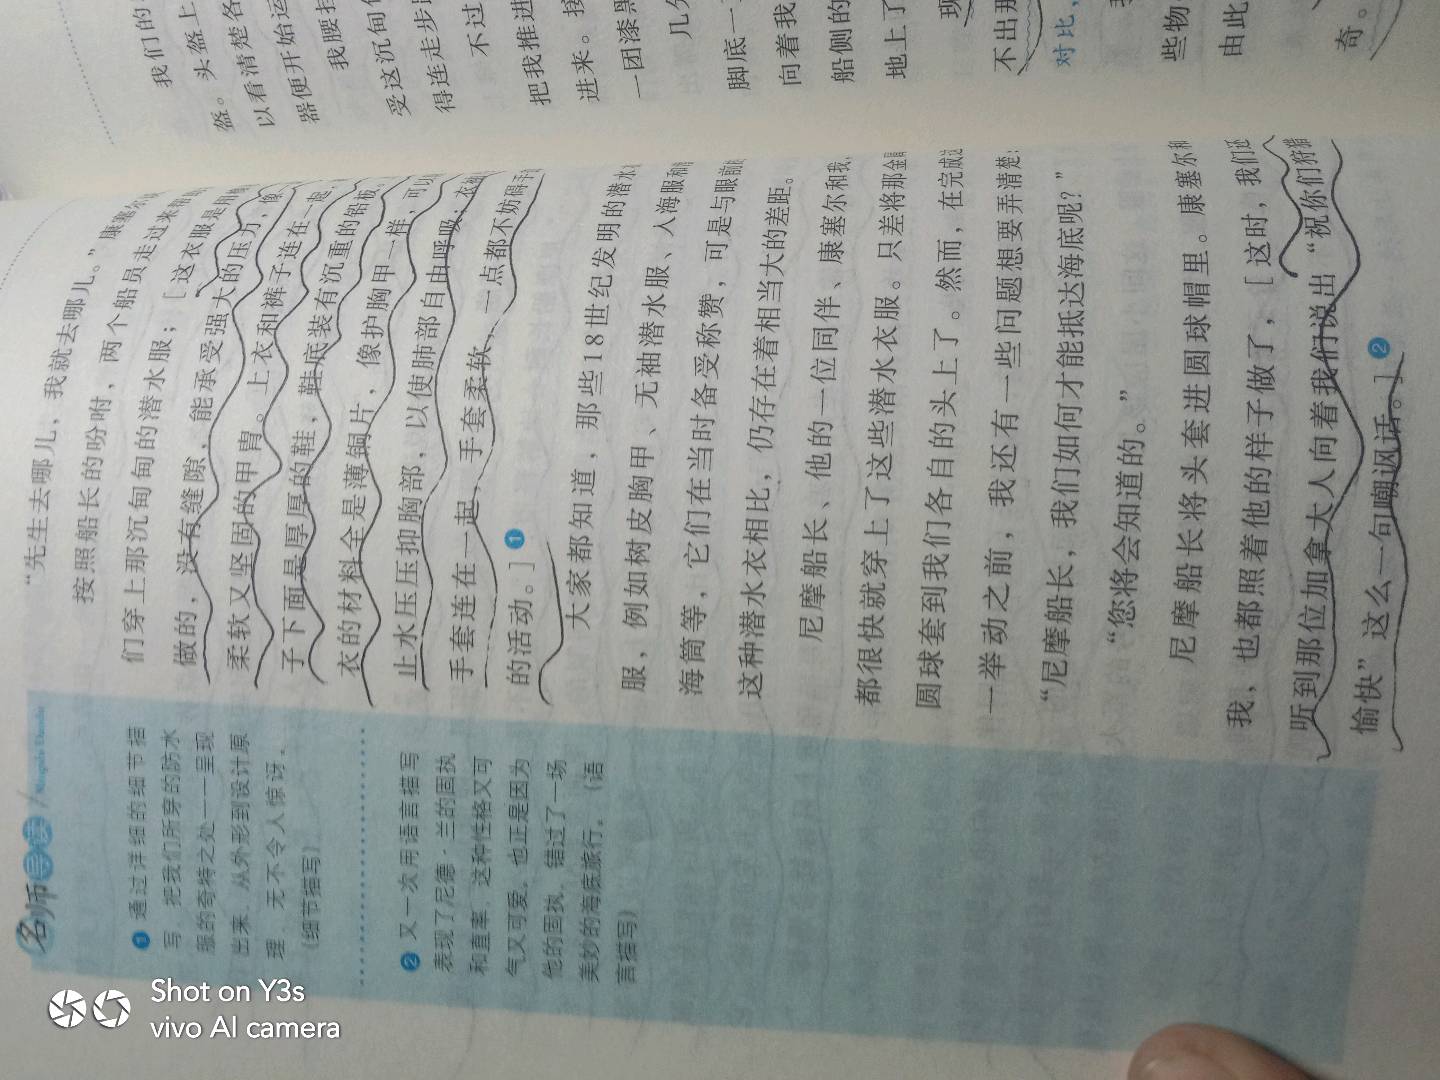 名师导读
❶ 通过详细的细节描
写，把我们所穿的防水
服的奇特之处一一呈现
出来，从外形到设计原
理，无不令人惊讶。
（细节描写）
❷ 又一次用语言描写
表现了尼德·兰的固执
和直率，这种性格又可
气又可爱，也正是因为
他的固执，错过了一场
美妙的海底旅行。（语
言描写）
“先生去哪儿，我就去哪儿。”康塞尔
按照船长的吩咐，两个船员走过来
们穿上那沉甸甸的潜水服；[这衣服是用
做的，没有缝隙，能承受强大的压力，像
柔软又坚固的甲胄。上衣和裤子连在一起，
子下面是厚厚的鞋，鞋底装有沉重的铅板。
衣的材料全是薄铜片，像护胸甲一样，可以
止水压压抑胸部，以使肺部自由呼吸；衣
手套连在一起，手套柔软，一点都不妨碍手
的活动。]❶
大家都知道，那些18世纪发明的潜水
服，例如树皮胸甲、无袖潜水服、入海服和
海筒等，它们在当时备受称赞，可是与眼前
这种潜水衣相比，仍存在着相当大的差距。
尼摩船长、他的一位同伴、康塞尔和我，
都很快就穿上了这些潜水衣服。只差将那金
圆球套到我们各自的头上了。然而，在完成这
一举动之前，我还有一些问题想要弄清楚：
“尼摩船长，我们如何才能抵达海底呢？”
“您将会知道的。”
尼摩船长将头套进圆球帽里。康塞尔和
我，也都照着他的样子做了，[这时，我们还
听到那位加拿大人向着我们说出“祝你们狩猎
愉快”这么一句嘲讽话。]❷
我们的
头盔上
盔。
以看清楚各
器便开始运
我腰
受这沉甸
得连走步
不过
把我推进
进来。接
一团漆黑
几分
脚底一
向着我
船侧的
地上了
现
不出那
对比，
些物
由此
奇。
Shot on Y3s
vivo AI camera